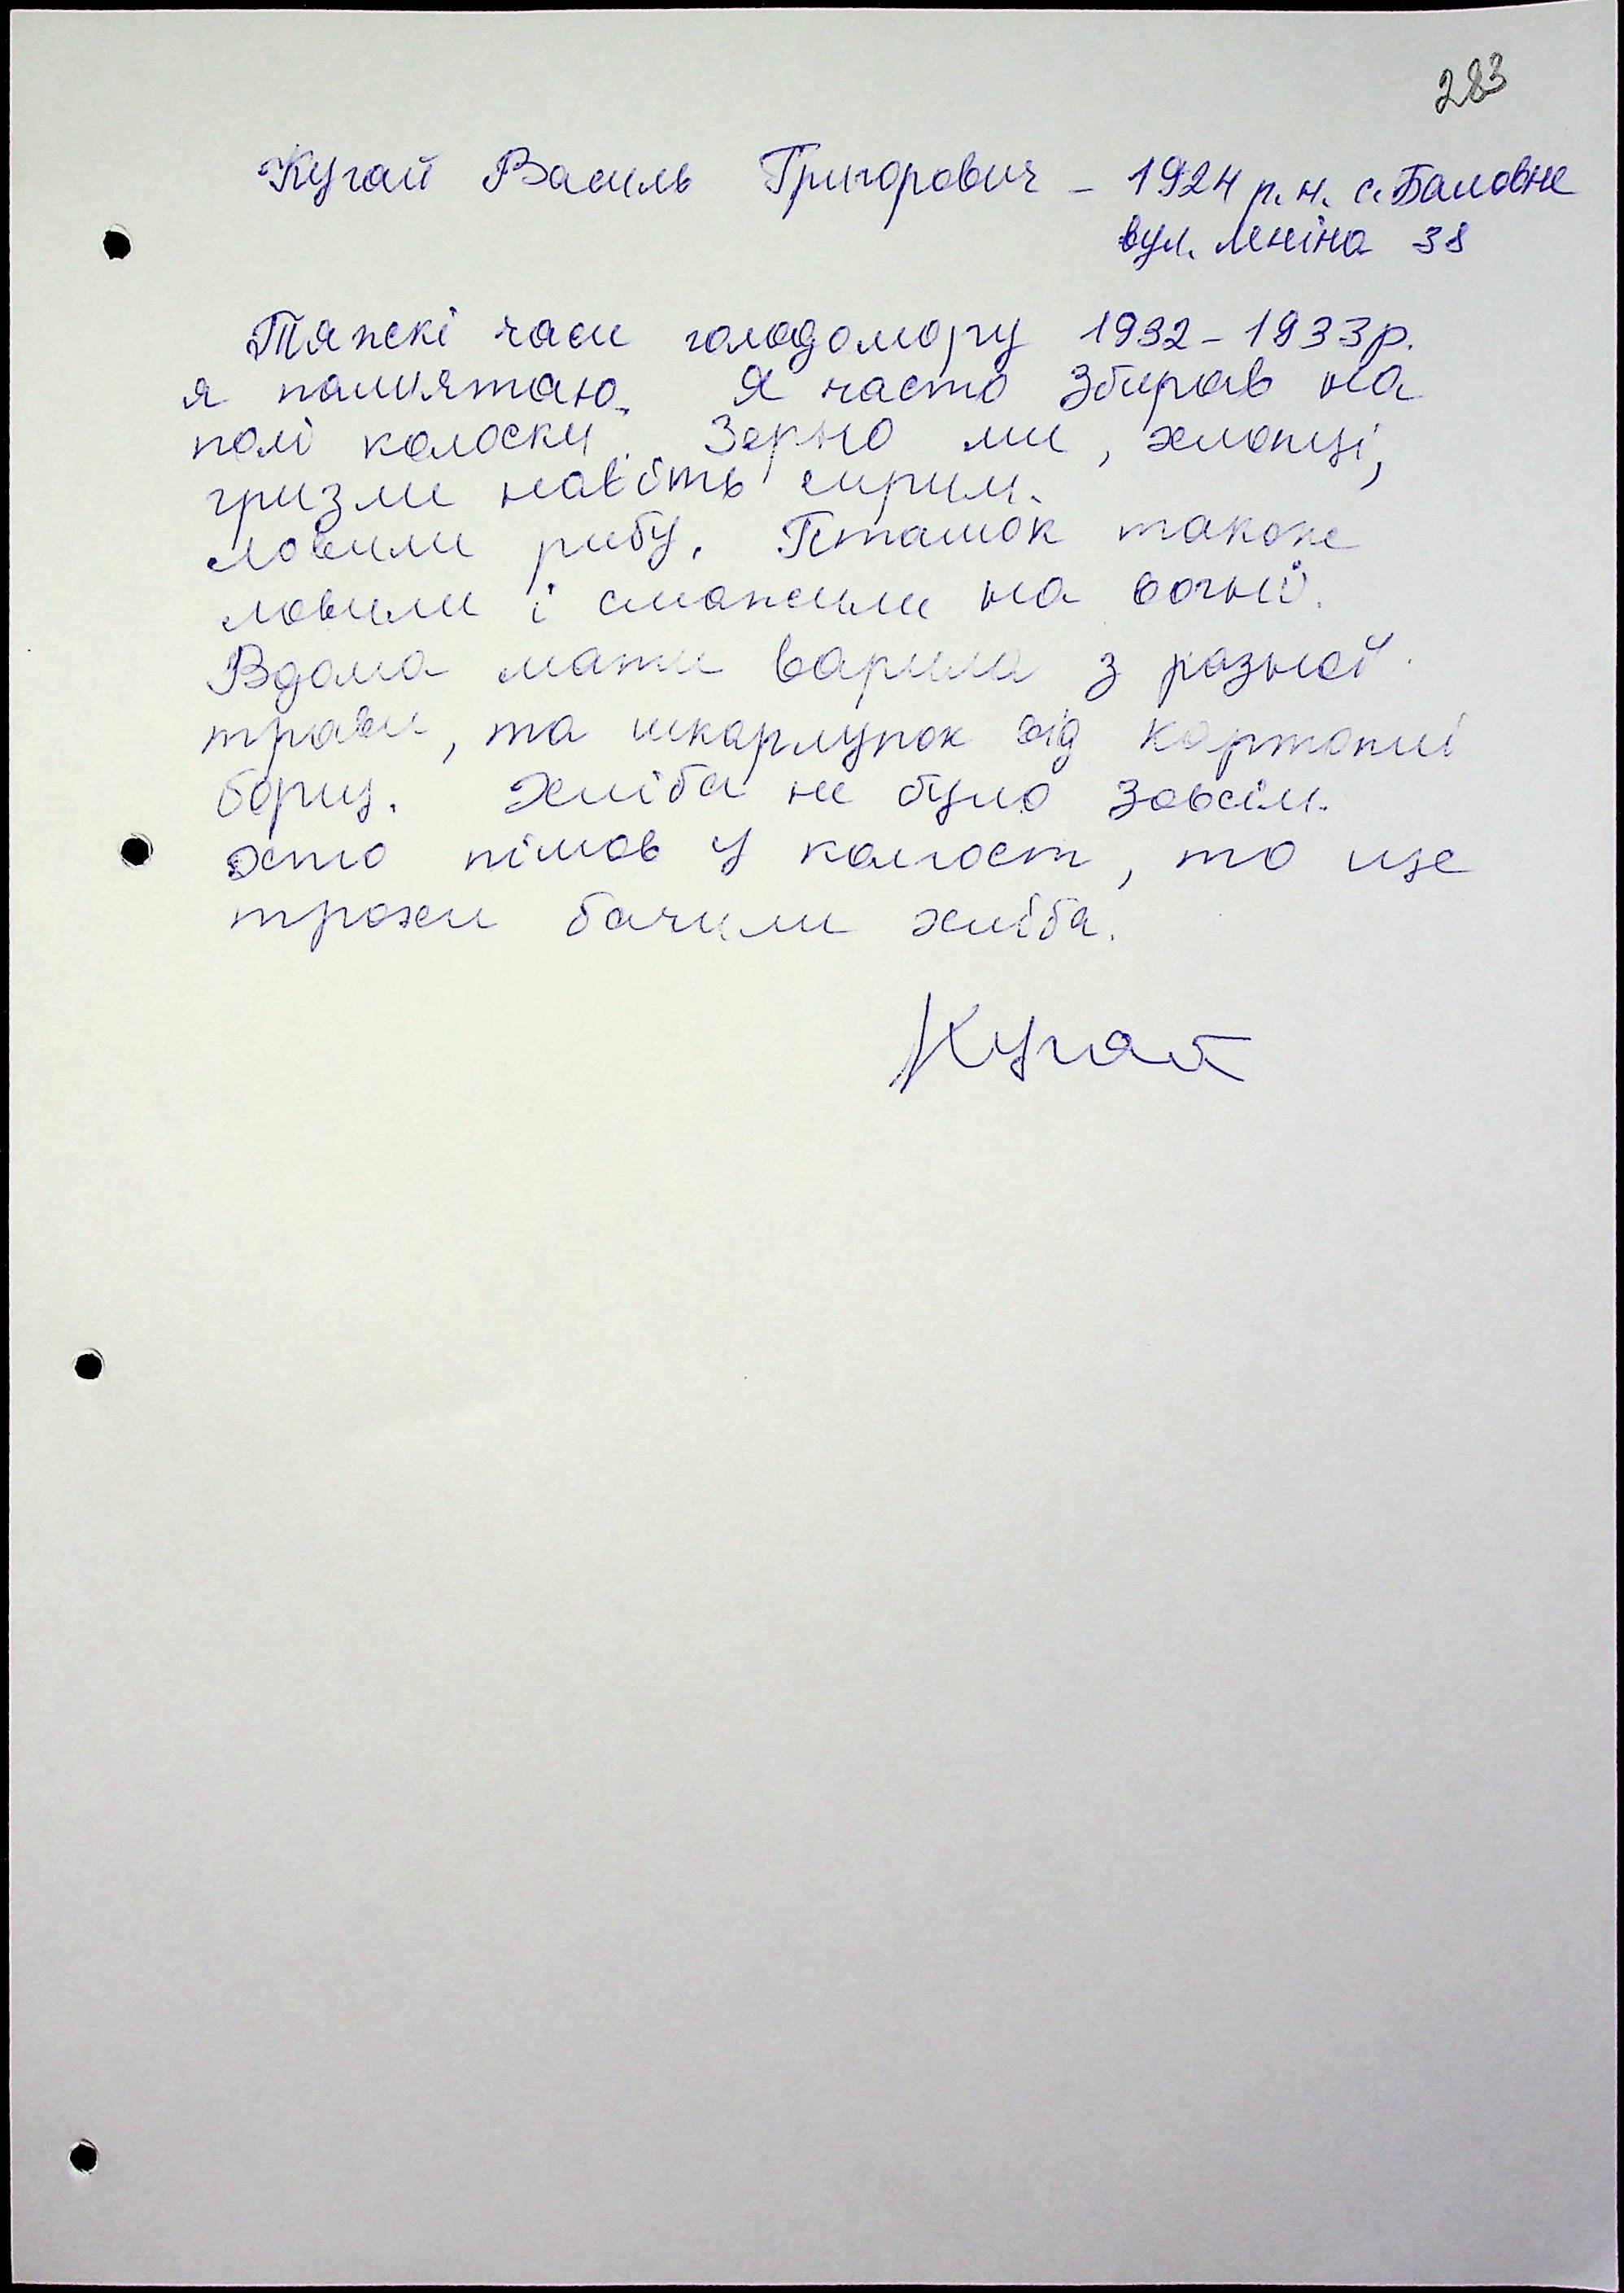 283
Кугай Василь Григорович - 1924 р.н. с. Баловне
вул. Леніна 38
Тяжкі часи голодомору 1932-1933р.
я памятаю. Я часто збирав на
полі колоски. Зерно ми, хлопці,
гризли навіть сирим.
Ловили рибу. Пташок також
ловили і смажили на вогні.
Вдома мати варила з разної
трави, та шкарлупок від картоплі
борщ. Хліба не було зовсім.
Хто пішов у колгосп, то ще
трохи бачили хліба.
Кугай